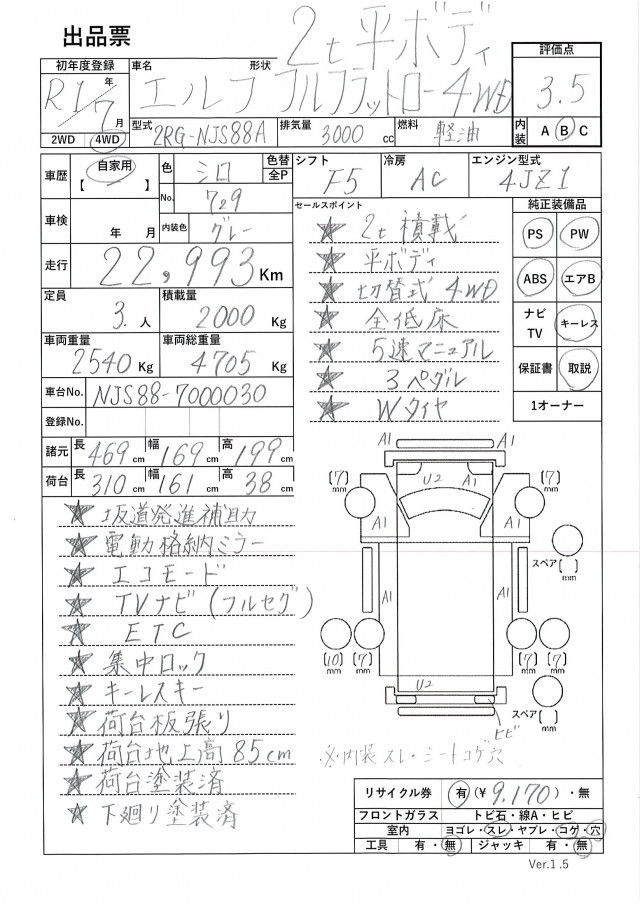 出品票
2t 平ボディ
初年度登録 車名 形状 評価点
R1年 7月 エルフ フルフラットロー 4WD 3.5
2WD 4WD 型式 2RG-NJS88A 排気量 3000 cc 燃料 軽油 内装 A B C
車歴 自家用 【 】 色 シロ 色替 全P シフト F5 冷房 AC エンジン型式 4JZ1
No. 729
車検 年 月 内装色 グレー
走行 22,993 Km
定員 3 人 積載量 2000 Kg
車両重量 2540 Kg 車両総重量 4705 Kg
車台No. NJS88-7000030
登録No.
諸元 長 469 cm 幅 169 cm 高 199 cm
荷台 長 310 cm 幅 161 cm 高 38 cm
セールスポイント
★ 2t 積載
★ 平ボディ
★ 切替式 4WD
★ 全低床
★ 5速マニュアル
★ 3ペダル
★ Wタイヤ
純正装備品
PS PW
ABS エアB
ナビTV キーレス
保証書 取説
1オーナー
★ 坂道発進補助
★ 電動格納ミラー
★ エコモード
★ TVナビ(フルセグ)
★ ETC
★ 集中ロック
★ キーレスキー
★ 荷台板張り
★ 荷台地上高 85cm
★ 荷台塗装済
★ 下廻り塗装済
A1 A1
(7) mm U2 A1 (7) mm
A1 A1
スペア( ) mm
A1 A1
(10) mm (7) mm (7) mm (7) mm
U2
ヒビ
スペア( ) mm
※内装スレ・シートコゲ穴
リサイクル券 有 (¥ 9,170)・無
フロントガラス トビ石・線A・ヒビ
室内 ヨゴレ・スレ・ヤブレ・コゲ・穴
工具 有・無 ジャッキ 有・無
Ver.1.5